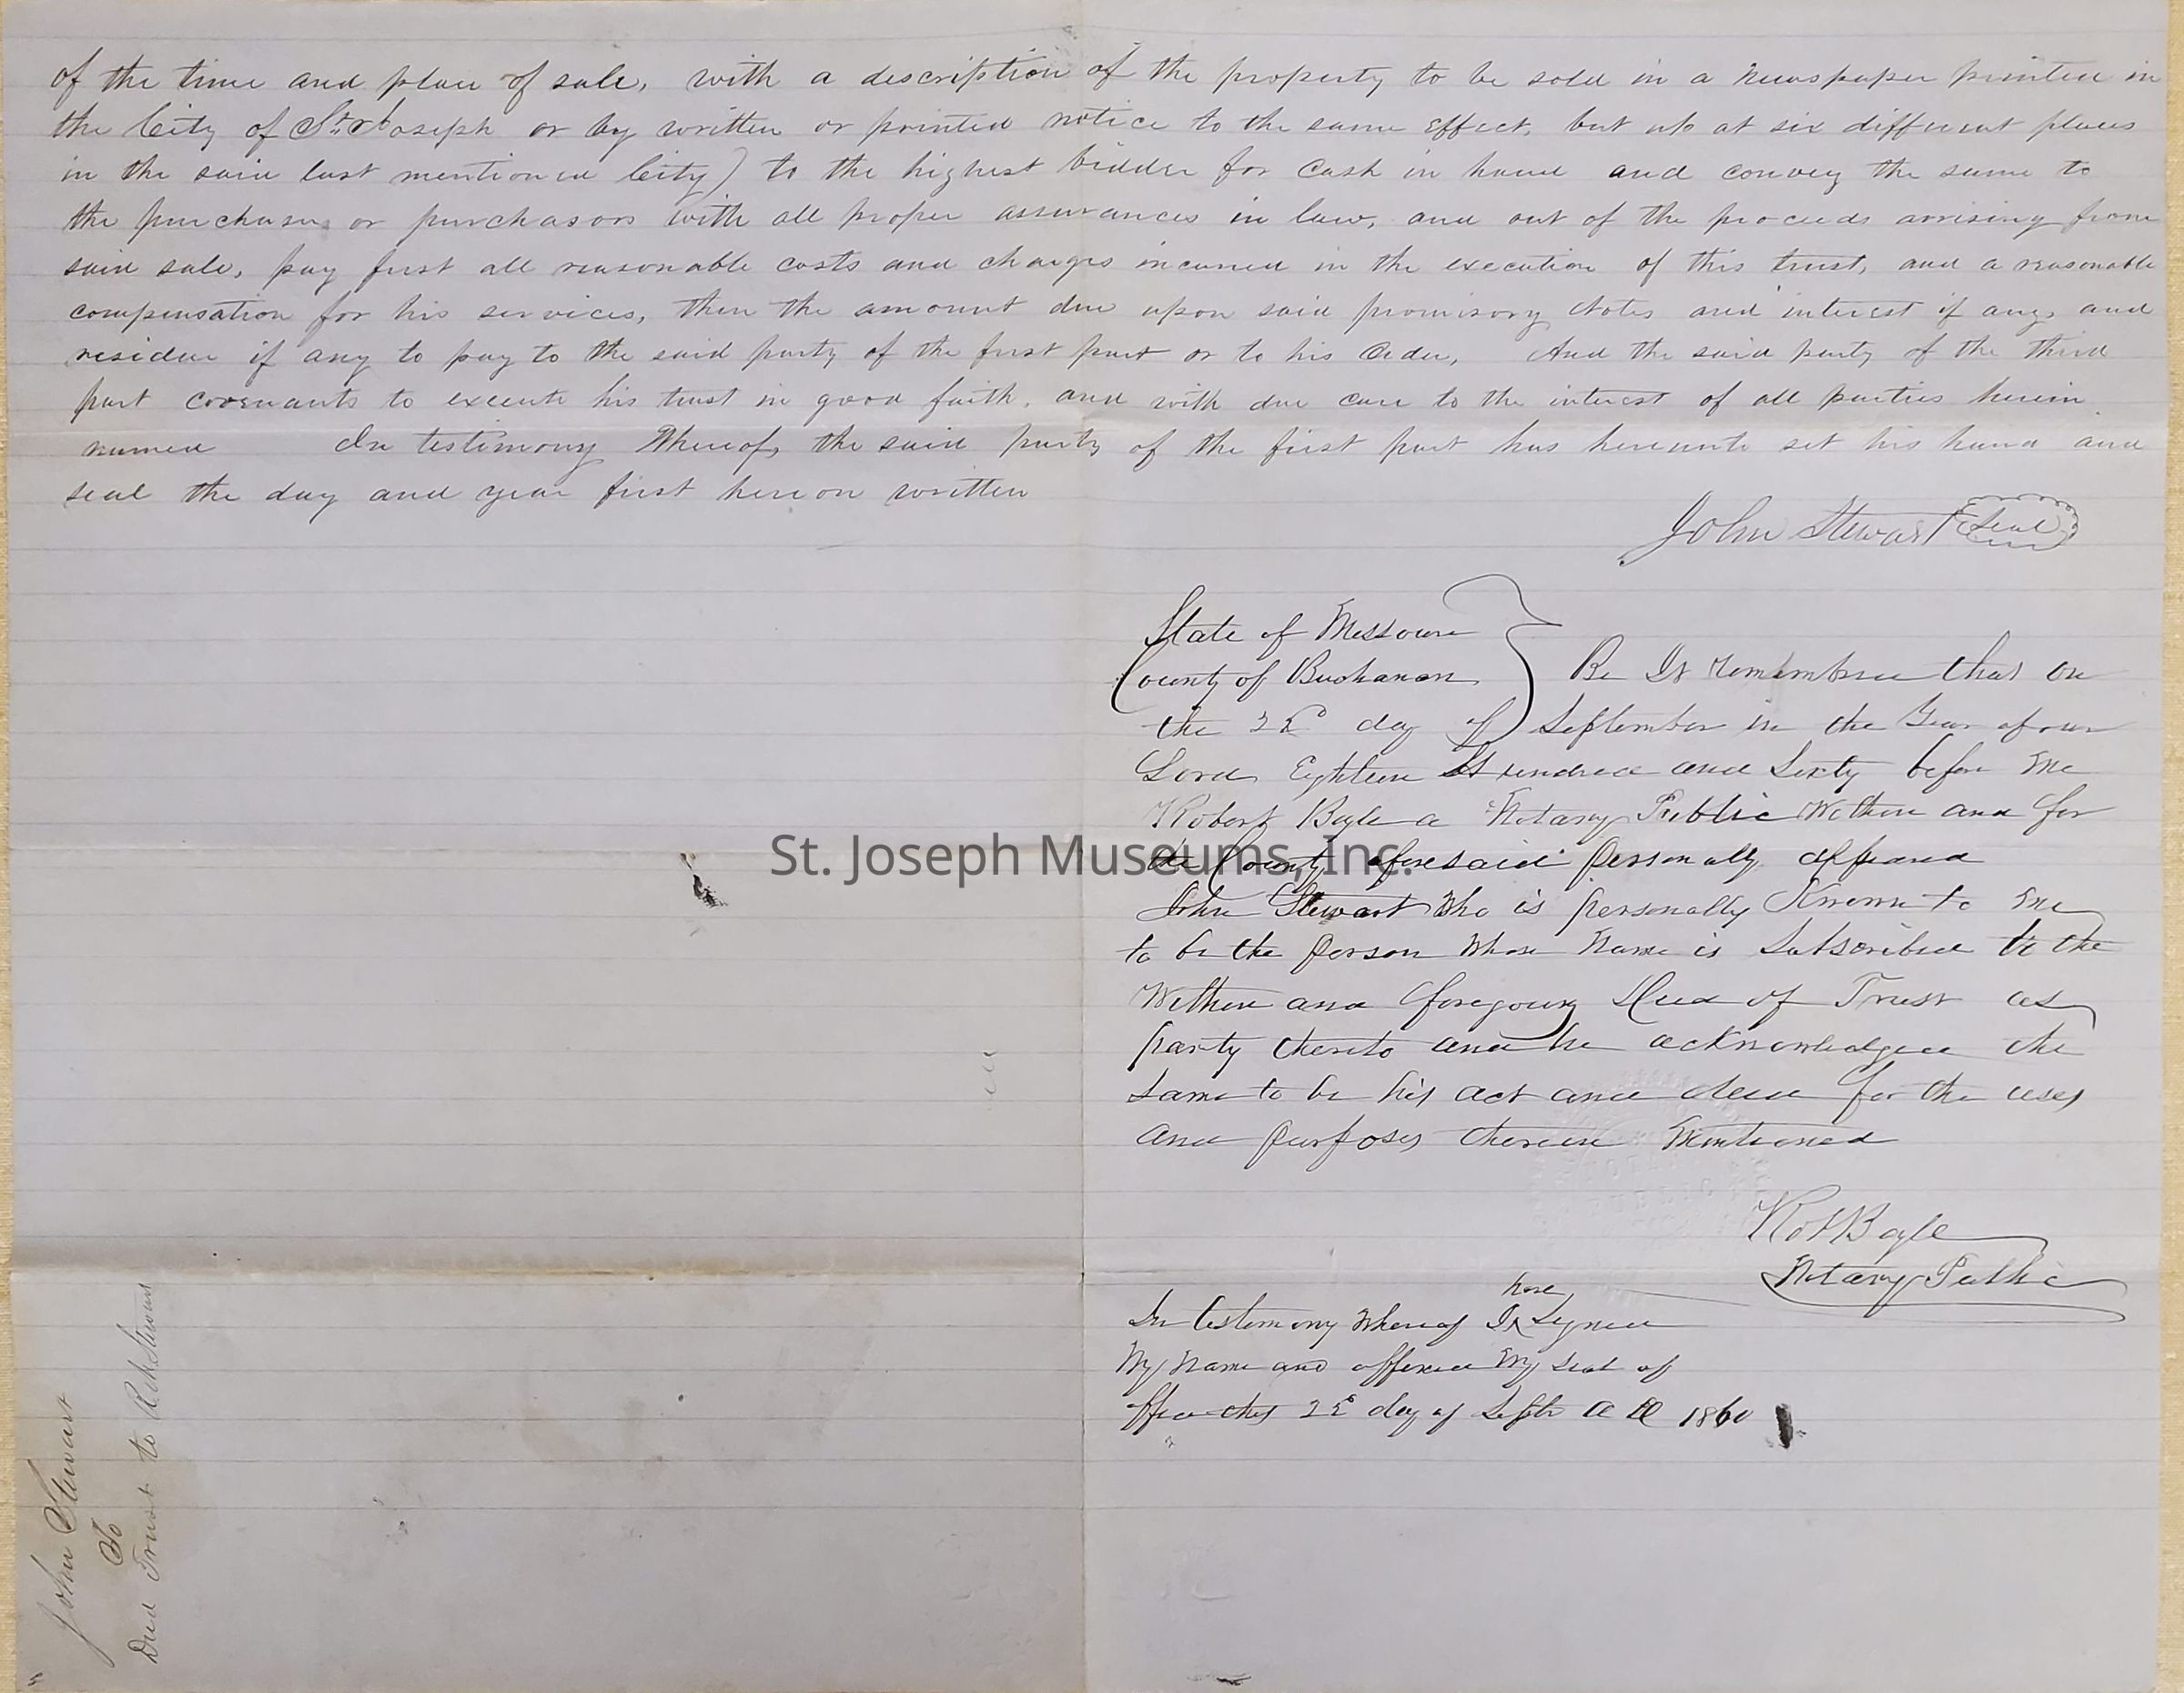 of the time and place of sale, with a description of the property to be sold in a Newspaper printed in
the City of St. Joseph or by written or printed notice to the same Effect, but up at six different places
in the said last mentioned City) to the highest bidder for Cash in hand and convey the same to
the purchaser or purchasors with all proper assurances in law, and out of the proceeds arrising from
said sale, pay first all reasonable costs and charges incurred in the execution of this trust, and a reasonable
compensation for his services, then the amount due upon said promisory Notes and interest if any, and
residue if any to pay to the said party of the first part or to his Order, And the said party of the third
part covenants to execute his trust in good faith, and with due care to the interest of all parties herein
named In testimony Whereof, the said party of the first part has hereunto set his hand and
seal the day and year first hereon written
John Stewart Seal
State of Missouri
County of Buchanan Be It remembered that on
the 22d day of September in the Year of our
Lord Eighteen Hundred and Sixty before me
Robert Bogle a Notary Public Within and for
the County aforesaid personally appeared
John Stewart Who is personally Known to me
to be the person Whose Name is Subscribed to the
Within and foregoing Deed of Trust as
party thereto and he acknowledged the
Same to be his act and deed for the uses
and purposes therein Mentioned
Robt Bogle
Notary Public
In testimony Whereof I have Signed
My Name and affixed My Seal of
office this 22d day of Septr A D 1860
John Stewart
To
Deed Trust to Rich Stewart
St. Joseph Museums, Inc.